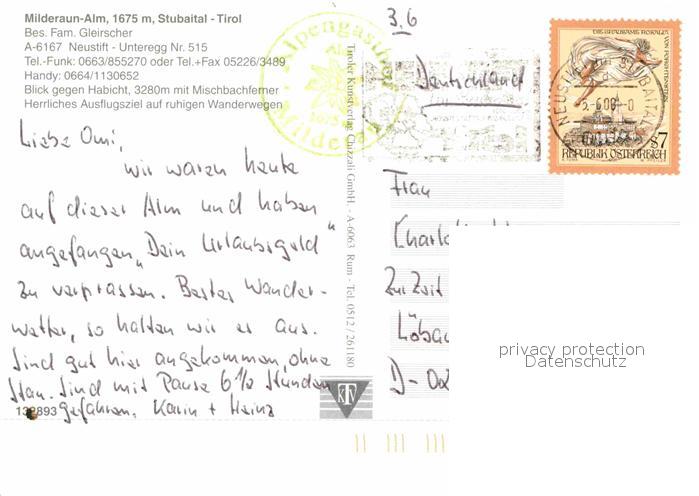 Milderaun-Alm, 1675 m, Stubaital - Tirol
Bes. Fam. Gleirscher
A-6167 Neustift - Unteregg Nr. 515
Tel.-Funk: 0663/855270 oder Tel.+Fax 05226/3489
Handy: 0664/1130652
Blick gegen Habicht, 3280m mit Mischbachferner
Herrliches Ausflugsziel auf ruhigen Wanderwegen
Liebe Omi,
wir waren heute
auf dieser Alm und haben
angefangen „Dein Urlaubsgeld"
zu verprassen. Bestes Wander-
wetter, so halten wir es aus.
Sind gut hier angekommen, ohne
Stau. Sind mit Pause 6 1/2 Stunden
gefahren. Karin + Heinz
132893
Alpengasthof
Tiroler Kunstverlag Chizzali GmbH. - A-6063 Rum - Tel. 0512 / 261180
KTV
3.6
Deutschland
DIE GRAUSAME ROSALIA VON FORCHTENSTEIN
S7
REPUBLIK ÖSTERREICH
NEUSTIFT IM STUBAITAL
Frau
Zur Zeit
Löbau
D-
privacy protection
Datenschutz